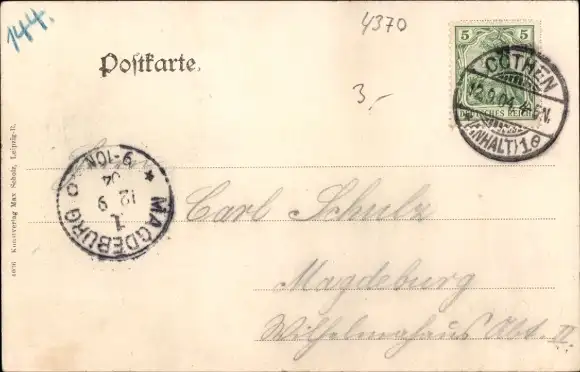 144.
4370
5 5
DEUTSCHES REICH
CÖTHEN
12.9.04.
(ANHALT) 1e
Postkarte.
3.-
MAGDEBURG
1
12 9
04
9-10N
Carl Schulz
Magdeburg
Wilhelmahaus Abt. II.
Kunstverlag Max Scholz, Leipzig-R.